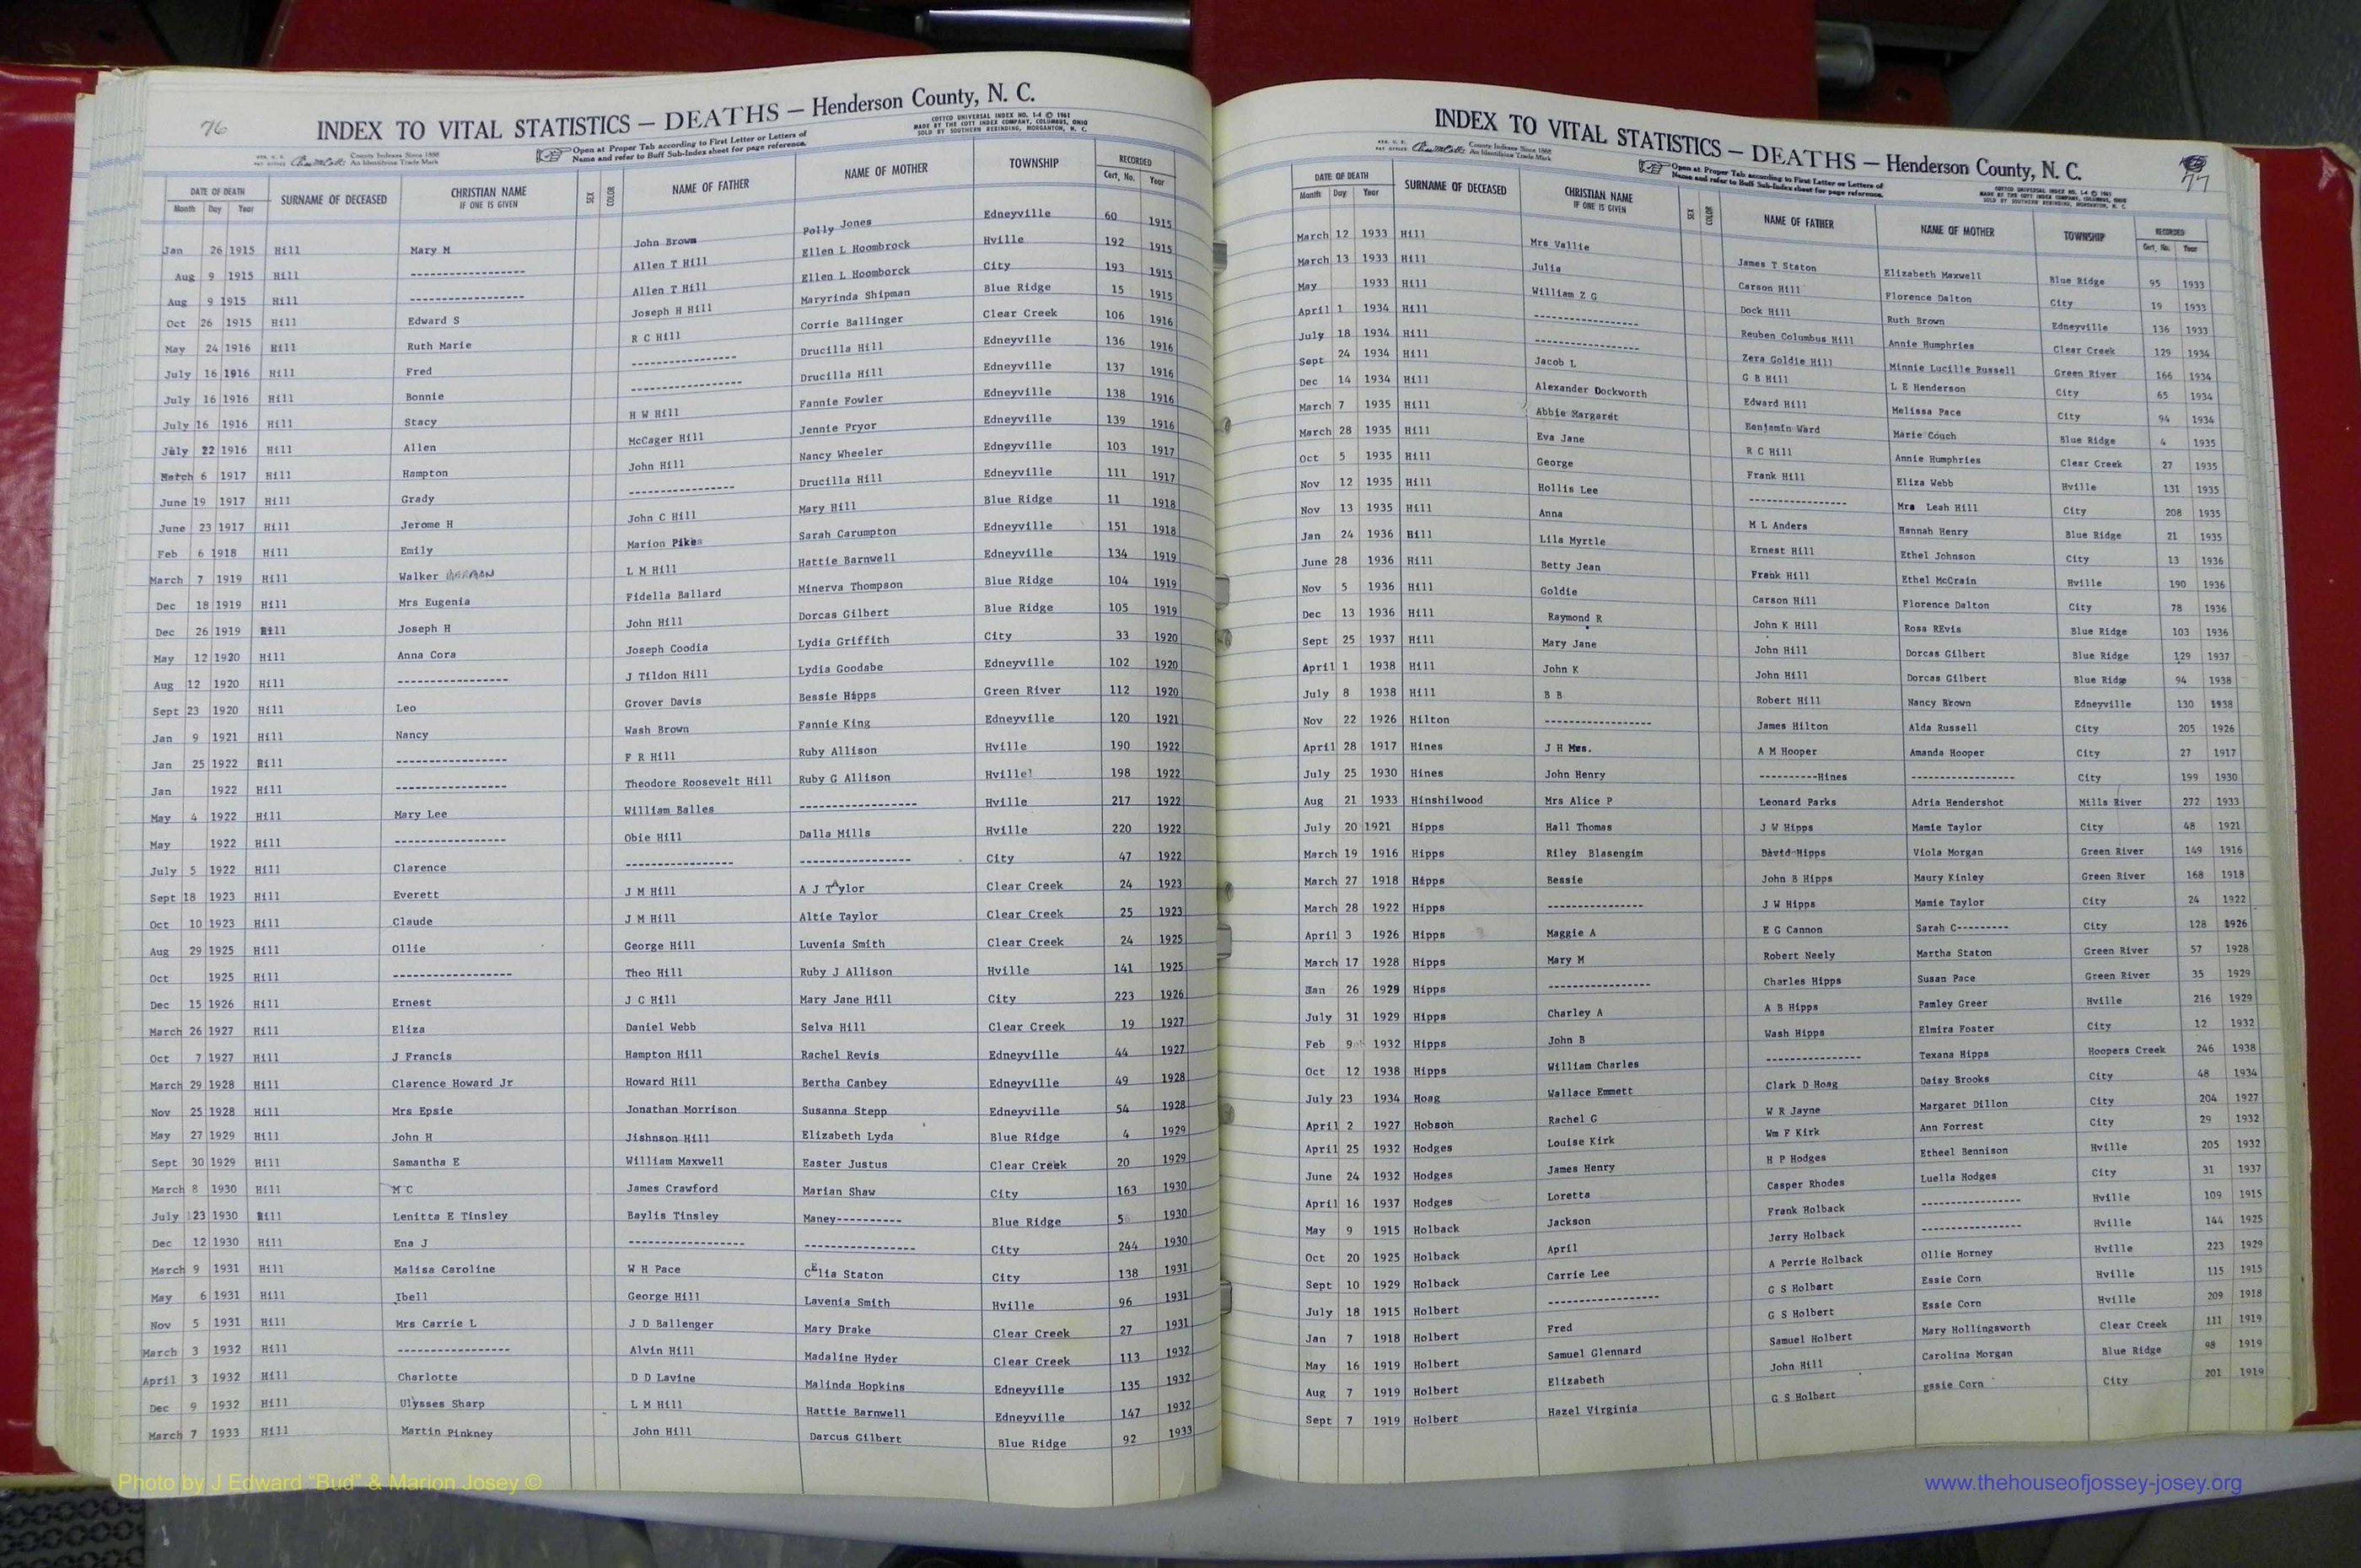 76
INDEX TO VITAL STATISTICS — DEATHS — Henderson County, N. C.
County Indexes Since 1888
An Identifying Trade Mark
Open at Proper Tab according to First Letter or Letters of
Name and refer to Buff Sub-Index sheet for page reference.
COTTCO UNIVERSAL INDEX NO. 1-4 © 1961
MADE BY THE COTT INDEX COMPANY, COLUMBUS, OHIO
SOLD BY SOUTHERN REBINDING, MORGANTON, N. C.
DATE OF DEATH SURNAME OF DECEASED CHRISTIAN NAME IF ONE IS GIVEN SEX COLOR NAME OF FATHER NAME OF MOTHER TOWNSHIP RECORDED
Month Day Year Cert. No. Year
Jan 26 1915 Hill Mary M John Brown Polly Jones Edneyville 60 1915
Aug 9 1915 Hill ---------------- Allen T Hill Ellen L Hoombrock Hville 192 1915
Aug 9 1915 Hill ---------------- Allen T Hill Ellen L Hoomborck City 193 1915
Oct 26 1915 Hill Edward S Joseph H Hill Maryrinda Shipman Blue Ridge 15 1915
May 24 1916 Hill Ruth Marie R C Hill Corrie Ballinger Clear Creek 106 1916
July 16 1916 Hill Fred ---------------- Drucilla Hill Edneyville 136 1916
July 16 1916 Hill Bonnie ---------------- Drucilla Hill Edneyville 137 1916
July 16 1916 Hill Stacy H W Hill Fannie Fowler Edneyville 138 1916
July 22 1916 Hill Allen McCager Hill Jennie Pryor Edneyville 139 1916
March 6 1917 Hill Hampton John Hill Nancy Wheeler Edneyville 103 1917
June 19 1917 Hill Grady ---------------- Drucilla Hill Edneyville 111 1917
June 23 1917 Hill Jerome H John C Hill Mary Hill Blue Ridge 11 1918
Feb 6 1918 Hill Emily Marion Pikes Sarah Carumpton Edneyville 151 1918
March 7 1919 Hill Walker L M Hill Hattie Barnwell Edneyville 134 1919
Dec 18 1919 Hill Mrs Eugenia Fidella Ballard Minerva Thompson Blue Ridge 104 1919
Dec 26 1919 Hill Joseph H John Hill Dorcas Gilbert Blue Ridge 105 1919
May 12 1920 Hill Anna Cora Joseph Coodia Lydia Griffith City 33 1920
Aug 12 1920 Hill ---------------- J Tildon Hill Lydia Goodabe Edneyville 102 1920
Sept 23 1920 Hill Leo Grover Davis Bessie Hipps Green River 112 1920
Jan 9 1921 Hill Nancy Wash Brown Fannie King Edneyville 120 1921
Jan 25 1922 Hill ---------------- F R Hill Ruby Allison Hville 190 1922
Jan 1922 Hill ---------------- Theodore Roosevelt Hill Ruby G Allison Hville 198 1922
May 4 1922 Hill Mary Lee William Balles ---------------- Hville 217 1922
May 1922 Hill ---------------- Obie Hill Dalla Mills Hville 220 1922
July 5 1922 Hill Clarence ---------------- ---------------- City 47 1922
Sept 18 1923 Hill Everett J M Hill A J TAylor Clear Creek 24 1923
Oct 10 1923 Hill Claude J M Hill Altie Taylor Clear Creek 25 1923
Aug 29 1925 Hill Ollie George Hill Luvenia Smith Clear Creek 24 1925
Oct 1925 Hill ---------------- Theo Hill Ruby J Allison Hville 141 1925
Dec 15 1926 Hill Ernest J C Hill Mary Jane Hill City 223 1926
March 26 1927 Hill Eliza Daniel Webb Selva Hill Clear Creek 19 1927
Oct 7 1927 Hill J Francis Hampton Hill Rachel Revis Edneyville 44 1927
March 29 1928 Hill Clarence Howard Jr Howard Hill Bertha Canbey Edneyville 49 1928
Nov 25 1928 Hill Mrs Epsie Jonathan Morrison Susanna Stepp Edneyville 54 1928
May 27 1929 Hill John H Jishnson Hill Elizabeth Lyda Blue Ridge 4 1929
Sept 30 1929 Hill Samantha E William Maxwell Easter Justus Clear Creek 20 1929
March 8 1930 Hill M C James Crawford Marian Shaw City 163 1930
July 23 1930 Hill Lenitta E Tinsley Baylis Tinsley Maney---------- Blue Ridge 5 1930
Dec 12 1930 Hill Ena J ---------------- ---------------- City 244 1930
March 9 1931 Hill Malisa Caroline W H Pace CElia Staton City 138 1931
May 6 1931 Hill Ibell George Hill Lavenia Smith Hville 96 1931
Nov 5 1931 Hill Mrs Carrie L J D Ballenger Mary Drake Clear Creek 27 1931
March 3 1932 Hill ---------------- Alvin Hill Madaline Hyder Clear Creek 113 1932
April 3 1932 Hill Charlotte D D Lavine Malinda Hopkins Edneyville 135 1932
Dec 9 1932 Hill Ulysses Sharp L M Hill Hattie Barnwell Edneyville 147 1932
March 7 1933 Hill Martin Pinkney John Hill Darcus Gilbert Blue Ridge 92 1933
77
INDEX TO VITAL STATISTICS — DEATHS — Henderson County, N. C.
County Indexes Since 1888
An Identifying Trade Mark
Open at Proper Tab according to First Letter or Letters of
Name and refer to Buff Sub-Index sheet for page reference.
COTTCO UNIVERSAL INDEX NO. 1-4 © 1961
MADE BY THE COTT INDEX COMPANY, COLUMBUS, OHIO
SOLD BY SOUTHERN REBINDING, MORGANTON, N. C.
DATE OF DEATH SURNAME OF DECEASED CHRISTIAN NAME IF ONE IS GIVEN SEX COLOR NAME OF FATHER NAME OF MOTHER TOWNSHIP RECORDED
Month Day Year Cert. No. Year
March 12 1933 Hill Mrs Vallie James T Staton Elizabeth Maxwell Blue Ridge 95 1933
March 13 1933 Hill Julia Carson Hill Florence Dalton City 19 1933
May 1933 Hill William Z G Dock Hill Ruth Brown Edneyville 136 1933
April 1 1934 Hill ---------------- Reuben Columbus Hill Annie Humphries Clear Creek 129 1934
July 18 1934 Hill ---------------- Zera Goldie Hill Minnie Lucille Russell Green River 166 1934
Sept 24 1934 Hill Jacob L G B Hill L E Henderson City 65 1934
Dec 14 1934 Hill Alexander Dockworth Edward Hill Melissa Pace City 94 1934
March 7 1935 Hill Abbie Margaret Benjamin Ward Marie Couch Blue Ridge 4 1935
March 28 1935 Hill Eva Jane R C Hill Annie Humphries Clear Creek 27 1935
Oct 5 1935 Hill George Frank Hill Eliza Webb Hville 131 1935
Nov 12 1935 Hill Hollis Lee ---------------- Mrs Leah Hill City 208 1935
Nov 13 1935 Hill Anna M L Anders Hannah Henry Blue Ridge 21 1935
Jan 24 1936 Hill Lila Myrtle Ernest Hill Ethel Johnson City 13 1936
June 28 1936 Hill Betty Jean Frank Hill Ethel McCrain Hville 190 1936
Nov 5 1936 Hill Goldie Carson Hill Florence Dalton City 78 1936
Dec 13 1936 Hill Raymond R John K Hill Rosa REvis Blue Ridge 103 1936
Sept 25 1937 Hill Mary Jane John Hill Dorcas Gilbert Blue Ridge 129 1937
April 1 1938 Hill John K John Hill Dorcas Gilbert Blue Ridge 94 1938
July 8 1938 Hill B B Robert Hill Nancy Brown Edneyville 130 1938
Nov 22 1926 Hilton ---------------- James Hilton Alda Russell City 205 1926
April 28 1917 Hines J H Mrs. A M Hooper Amanda Hooper City 27 1917
July 25 1930 Hines John Henry ----------Hines ---------------- City 199 1930
Aug 21 1933 Hinshilwood Mrs Alice P Leonard Parks Adria Hendershot Mills River 272 1933
July 20 1921 Hipps Hall Thomas J W Hipps Mamie Taylor City 48 1921
March 19 1916 Hipps Riley Blasengim David Hipps Viola Morgan Green River 149 1916
March 27 1918 Hipps Bessie John B Hipps Maury Kinley Green River 168 1918
March 28 1922 Hipps ---------------- J W Hipps Mamie Taylor City 24 1922
April 3 1926 Hipps Maggie A E G Cannon Sarah C--------- City 128 1926
March 17 1928 Hipps Mary M Robert Neely Martha Staton Green River 57 1928
Jan 26 1929 Hipps ---------------- Charles Hipps Susan Pace Green River 35 1929
July 31 1929 Hipps Charley A A B Hipps Pamley Greer Hville 216 1929
Feb 9 1932 Hipps John B Wash Hipps Elmira Foster City 12 1932
Oct 12 1938 Hipps William Charles ---------------- Texana Hipps Hoopers Creek 246 1938
July 23 1934 Hoag Wallace Emmett Clark D Hoag Daisy Brooks City 48 1934
April 2 1927 Hobson Rachel G W R Jayne Margaret Dillon City 204 1927
April 25 1932 Hodges Louise Kirk Wm F Kirk Ann Forrest City 29 1932
June 24 1932 Hodges James Henry H P Hodges Etheel Bennison Hville 205 1932
April 16 1937 Hodges Loretta Casper Rhodes Luella Hodges City 31 1937
May 9 1915 Holback Jackson Frank Holback ---------------- Hville 109 1915
Oct 20 1925 Holback April Jerry Holback ---------------- Hville 144 1925
Sept 10 1929 Holback Carrie Lee A Perrie Holback Ollie Horney Hville 223 1929
July 18 1915 Holbert ---------------- G S Holbert Essie Corn Hville 115 1915
Jan 7 1918 Holbert Fred G S Holbert Essie Corn Hville 209 1918
May 16 1919 Holbert Samuel Glennard Samuel Holbert Mary Hollingsworth Clear Creek 111 1919
Aug 7 1919 Holbert Elizabeth John Hill Carolina Morgan Blue Ridge 98 1919
Sept 7 1919 Holbert Hazel Virginia G S Holbert gssie Corn City 201 1919
Photo by J Edward “Bud” & Marion Josey ©
www.thehouseofjossey-josey.org